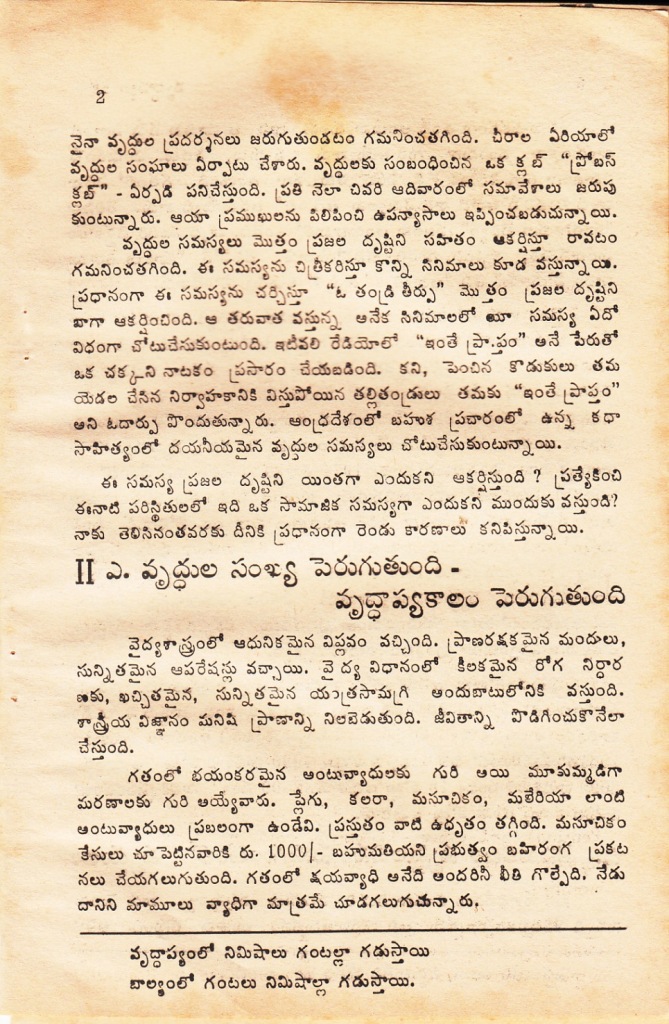 2
నైనా వృద్ధుల ప్రదర్శనలు జరుగుతుండటం గమనించతగింది. చీరాల ఏరియాలో
వృద్ధుల సంఘాలు ఏర్పాటు చేశారు. వృద్ధులకు సంబంధించిన ఒక క్లబ్ “ప్రోబస్
క్లబ్” - ఏర్పడి పనిచేస్తుంది. ప్రతి నెలా చివరి ఆదివారంలో సమావేశాలు జరుపు
కుంటున్నారు. ఆయా ప్రముఖులను పిలిపించి ఉపన్యాసాలు ఇప్పించబడుచున్నాయి.
వృద్ధుల సమస్యలు మొత్తం ప్రజల దృష్టిని సహితం ఆకర్షిస్తూ రావటం
గమనించతగింది. ఈ సమస్యను చిత్రీకరిస్తూ కొన్ని సినిమాలు కూడ వస్తున్నాయి.
ప్రధానంగా ఈ సమస్యను చర్చిస్తూ “ఓ తండ్రి తీర్పు” మొత్తం ప్రజల దృష్టిని
బాగా ఆకర్షించింది. ఆ తరువాత వస్తున్న అనేక సినిమాలలో యీ సమస్య ఏదో
విధంగా చోటుచేసుకుంటుంది. ఇటీవలి రేడియోలో “ఇంతే ప్రాప్తం” అనే పేరుతో
ఒక చక్కని నాటకం ప్రసారం చేయబడింది. కని, పెంచిన కొడుకులు తమ
యెడల చేసిన నిర్వాహకానికి విస్తుపోయిన తల్లితండ్రులు తమకు “ఇంతే ప్రాప్తం”
అని ఓదార్పు పొందుతున్నారు. ఆంధ్రదేశంలో బహుశ ప్రచారంలో ఉన్న కథా
సాహిత్యంలో దయనీయమైన వృద్ధుల సమస్యలు చోటుచేసుకుంటున్నాయి.
ఈ సమస్య ప్రజల దృష్టిని యింతగా ఎందుకని ఆకర్షిస్తుంది ? ప్రత్యేకించి
ఈనాటి పరిస్థితులలో ఇది ఒక సామాజిక సమస్యగా ఎందుకని ముందుకు వస్తుంది?
నాకు తెలిసినంతవరకు దీనికి ప్రధానంగా రెండు కారణాలు కనిపిస్తున్నాయి.
II ఎ. వృద్ధుల సంఖ్య పెరుగుతుంది -
వృద్ధాప్యకాలం పెరుగుతుంది
వైద్యశాస్త్రంలో ఆధునికమైన విప్లవం వచ్చింది. ప్రాణరక్షకమైన మందులు,
సున్నితమైన ఆపరేషన్లు వచ్చాయి. వైద్య విధానంలో కీలకమైన రోగ నిర్ధార
ణకు, ఖచ్చితమైన, సున్నితమైన యంత్రసామగ్రి అందుబాటులోనికి వస్తుంది.
శాస్త్రీయ విజ్ఞానం మనిషి ప్రాణాన్ని నిలబెడుతుంది. జీవితాన్ని పొడిగించుకొనేలా
చేస్తుంది.
గతంలో భయంకరమైన అంటువ్యాధులకు గురి అయి మూకుమ్మడిగా
మరణాలకు గురి అయ్యేవారు. ప్లేగు, కలరా, మసూచికం, మలేరియా లాంటి
అంటువ్యాధులు ప్రబలంగా ఉండేవి. ప్రస్తుతం వాటి ఉధృతం తగ్గింది. మసూచికం
కేసులు చూపెట్టినవారికి రు. 1000/- బహుమతియని ప్రభుత్వం బహిరంగ ప్రకట
నలు చేయగలుగుతుంది. గతంలో క్షయవ్యాధి అనేది అందరినీ భీతి గొల్పేది. నేడు
దానిని మామూలు వ్యాధిగా మాత్రమే చూడగలుగుతున్నారు.
వృద్ధాప్యంలో నిమిషాలు గంటల్లా గడుస్తాయి
బాల్యంలో గంటలు నిమిషాల్లా గడుస్తాయి.